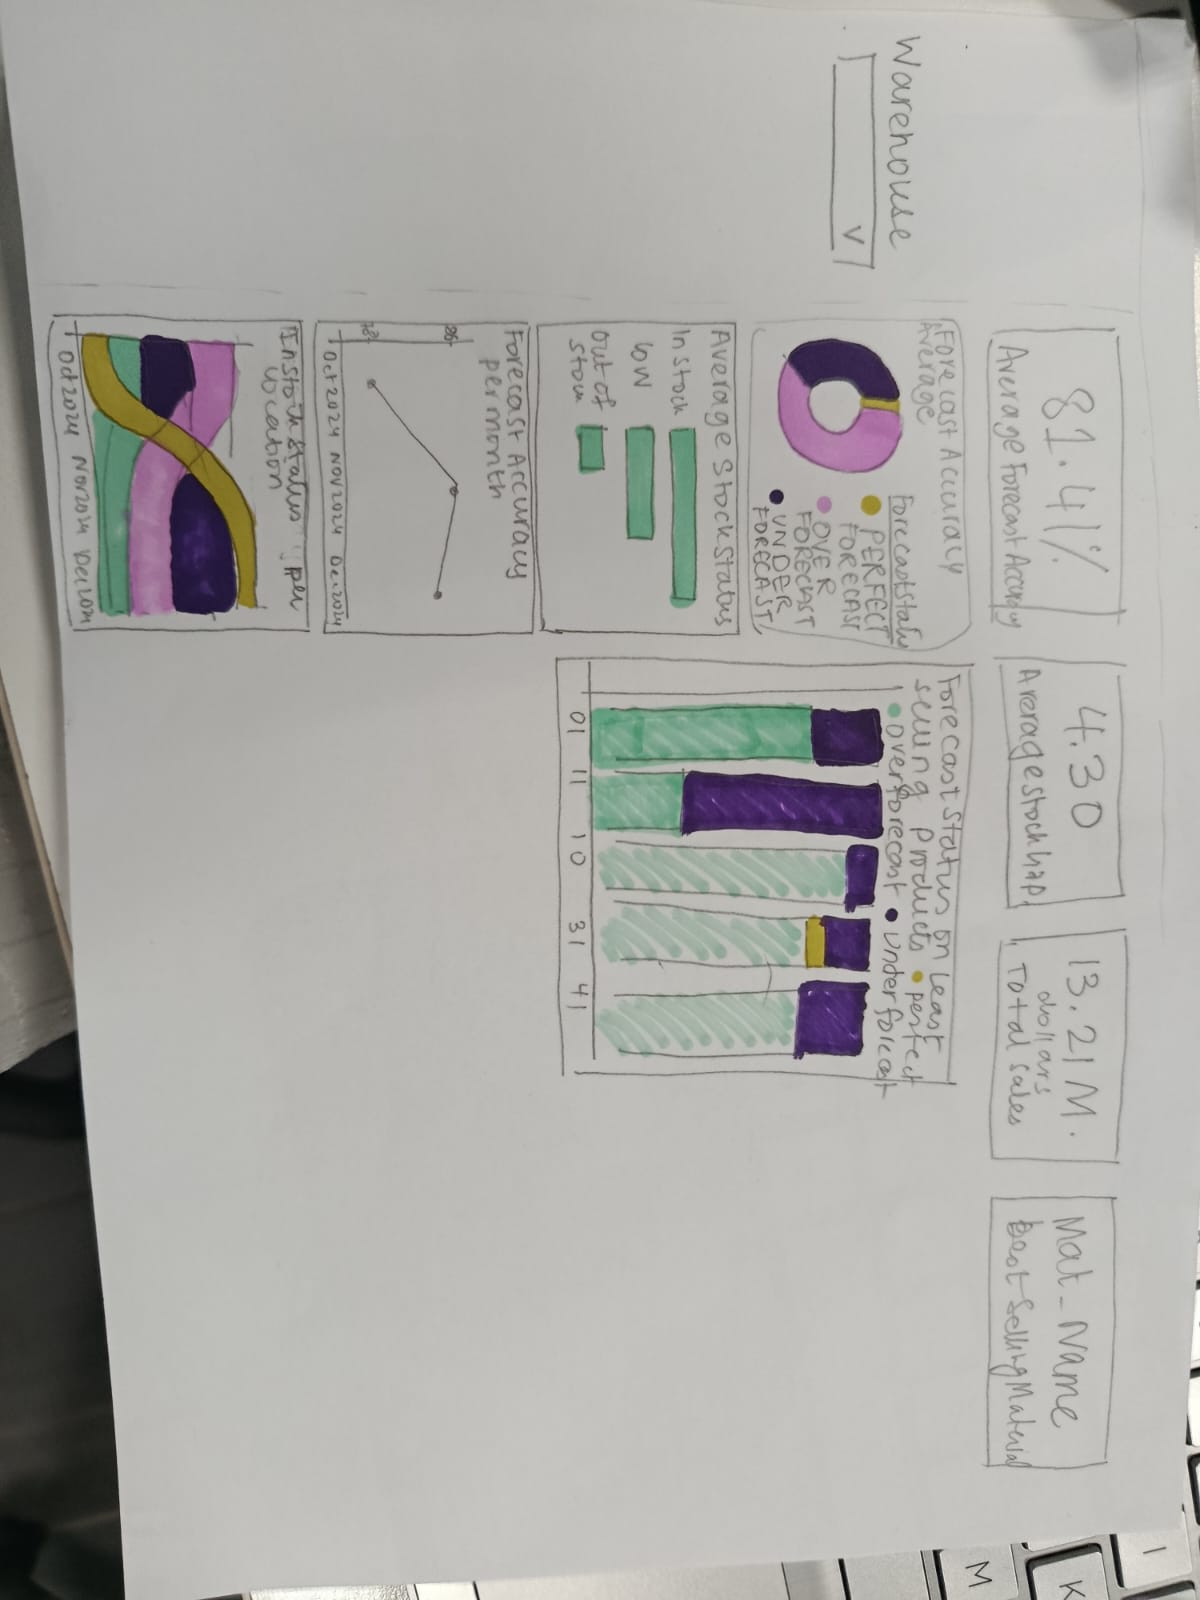 Warehouse
V
81.41%
Average Forecast Accuracy
4.30
Average stock hap.
13.21 M.
dollars
Total sales
Mat_Name
Best Selling Material
Forecast Accuracy
Average
Forecast statu
PERFECT
FORECAST
OVER
FORECAST
UNDER
FORECAST
Average Stock status
In stock
low
out of
stock
Forecast Accuracy
per month
Oct 2024 Nov 2024 Dec 2024
Instock status per
location
Oct 2024 Nov 2024 Dec 2024
Forecast status on least
selling products perfect
overforecast underforecast
01 11 10 31 41
M
K